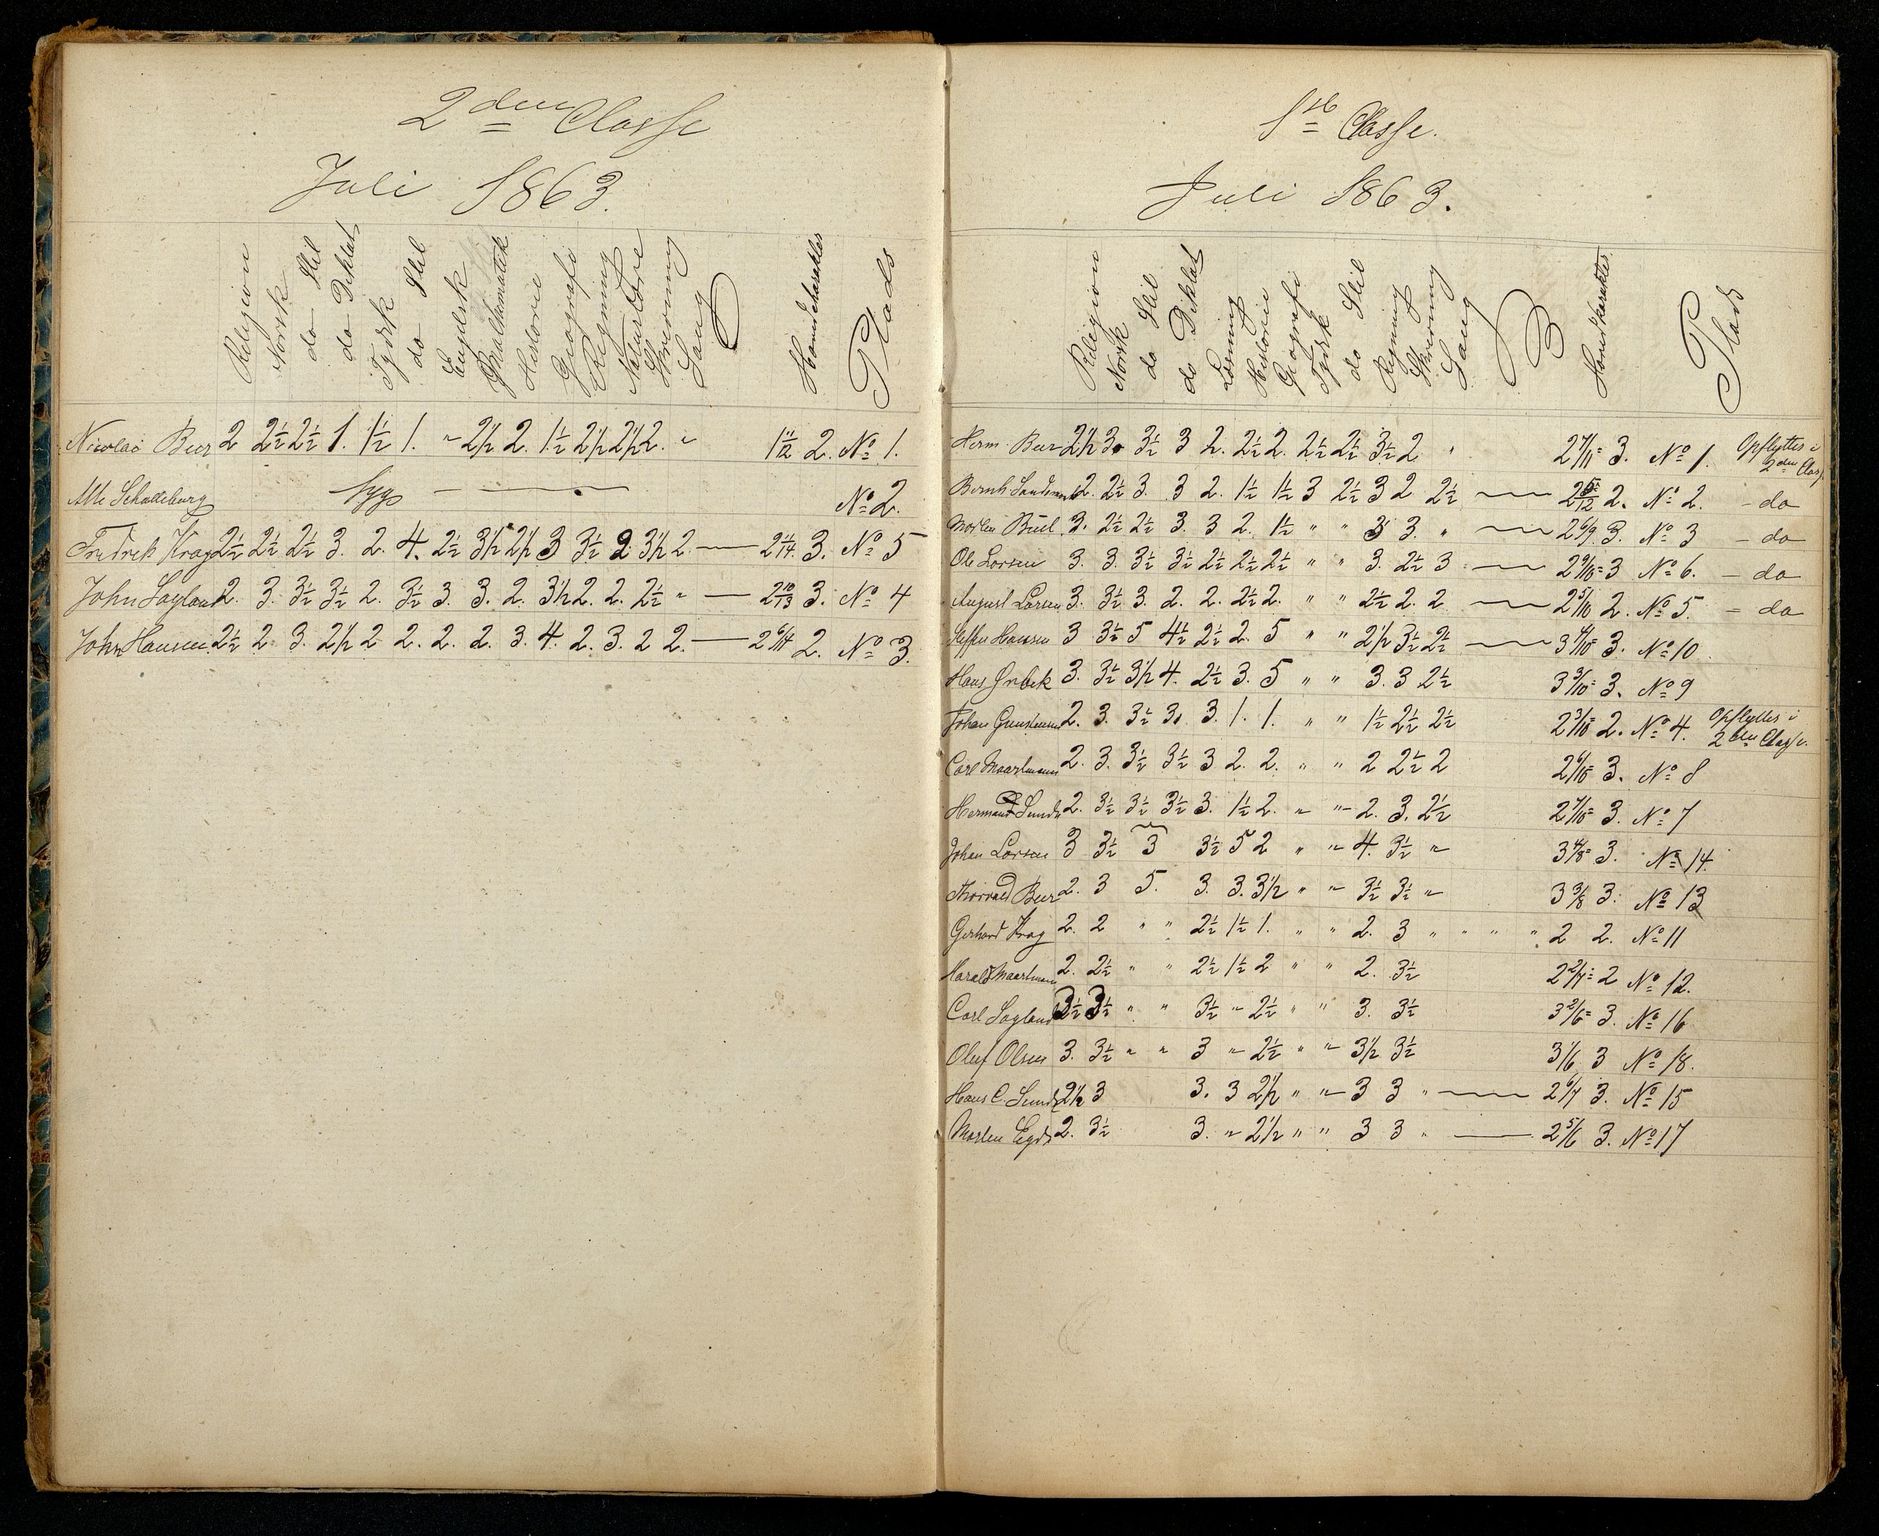 2den Classe
Juli 1863.
Religion Norsk do Stil do Diktat Tydsk do Stil Engelsk Mathematik Historie Geografi Regning Naturlære Skrivning Sang Hovedcharakter Plads
Nicolai Beer 2 2½ 2½ 1. 1½ 1. " 2½ 2. 1½ 2½ 2½ 2. " 1 11/12 2. No 1.
Schadeburg Syg No 2.
Fredrik Krag 2½ 2½ 2½ 3. 2. 4. 2½ 3½ 2½ 3 3½ 2 3½ 2. — 2 11/14 3. No 5
John Sayland 2. 3. 3½ 3½ 2. 3½ 3. 3. 2. 3½ 2. 2. 2½ " — 2 10/13 3. No 4
John Hansen 2½ 2 3. 2½ 2 2. 2. 2. 3. 4. 2. 3. 2 2. — 2 6/14 2. No 3.
1ste Classe.
Juli 1863.
Religion Norsk do Stil do Diktat Læsning Historie Geografi Tydsk do Stil Regning Skrivning Sang Hovedkarakter Plads
Herm. Beer 2½ 3. 3½ 3 2. 2½ 2. 2½ 2½ 3½ 2 " 2 7/11 = 3. No 1. Opflyttes i 2den Classe
Bernh. 2. 2½ 3. 3 2. 1½ 1½ 3 2½ 3 2 2½ — 2 5/12 2. No 2. — do
Morten Buel 3. 2½ 2½ 3. 3 2. 1½ " " 3 3. " — 2 6/9 3. No 3 — do
Ole Larsen 3. 3. 3½ 3½ 2½ 2½ 2½ " " 3. 2½ 3 — 2 9/10 = 3 No 6. — do
August Larsen 3. 3½ 3. 2. 2. 2½ 2. " " 2½ 2. 2 — 2 5/10 2. No 5. — do
Steffen Hansen 3 3½ 5 4½ 2½ 2. 5 " " 2½ 3½ 2½ — 3 4/10 = 3. No 10.
Hans Grbek 3. 3½ 3½ 4. 2½ 3. 5 " " 3. 3 2½ 3 3/10 = 3. No 9
Johan Gundersen 2. 3. 3½ 3. 3. 1. 1. " " 1½ 2½ 2½ 2 3/10 = 2. No 4. Opflyttes i 2den Classe.
Carl Maartmann 2. 3. 3½ 3½ 3 2. 2. " " 2 2½ 2 2 6/10 = 3. No 8
Hermand Sundt 2. 3½ 3½ 3½ 3. 1½ 2. " " 2. 3. 2½ 2 7/10 = 3. No 7
Johan Larsen 3 3½ 3 3½ 5 2 " " 4. 3½ " 3 4/8 = 3. No 14.
Thorvald Beer 2. 3 5. 3. 3. 3½ " " 3½ 3½ " 3 3/8 3. No 13
Gerhard Krag 2. 2 " " 2½ 1½ 1. " " 2. 3 " " " " 2 2. No 11
Harald Maartmann 2. 2½ " " 2½ 1½ 2 " " 2. 3½ 2 2/7 = 2 No 12.
Carl Sayland 3½ 3½ " " 3½ " 2½ " " 3. 3½ 3 2/6 = 3. No 16
Oluf Olsen 3. 3½ " " 3 " 2½ " " 3½ 3½ 3 1/6 3 No 18.
Hans C. Sundt 2½ 3 3. 3 2½ " " 3 3 " — 2 6/7 3. No 15
Morten Egd 2. 3½ 3. " 2½ " " 3 3 " — 2 5/6 3. No 17